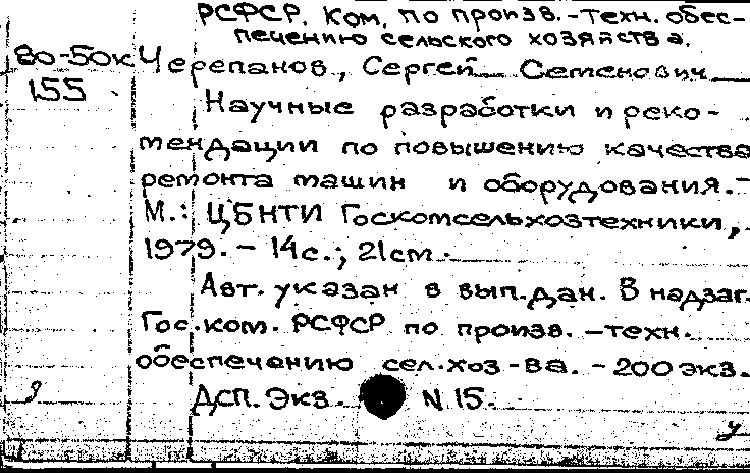 РСФСР. Ком. по произв.-техн. обес-
печению сельского хозяйства.
80-50к Черепанов, Сергей Семенович
155
Научные разработки и реко-
мендации по повышению качества
ремонта машин и оборудования.-
М.: ЦБНТИ Госкомсельхозтехники,
1979. - 14с.; 21см.
Авт. указан в вып.дан. В надзаг.
Гос.ком. РСФСР по произв.-техн.
обеспечению сел.хоз-ва. - 200 экз.
ДСП. Экз. N 15.